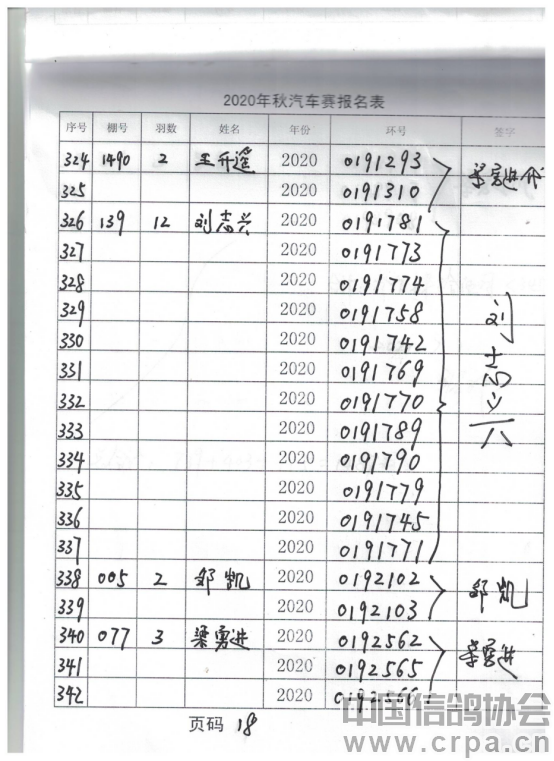 2020年秋汽车赛报名表
序号 棚号 羽数 姓名 年份 环号 签字
324 1490 2 王开遥 2020 0191293
325 2020 0191310
326 139 12 刘志兴 2020 0191781
327 2020 0191773
328 2020 0191774
329 2020 0191758
330 2020 0191742
331 2020 0191769
332 2020 0191770
333 2020 0191789
334 2020 0191790
335 2020 0191779
336 2020 0191745
337 2020 0191771
刘志兴
338 005 2 邹凯 2020 0192102 邹凯
339 2020 0192103
340 077 3 梁勇进 2020 0192562 梁勇进
341 2020 0192565
342 2020
页码 18
中国信鸽协会
www.crpa.cn